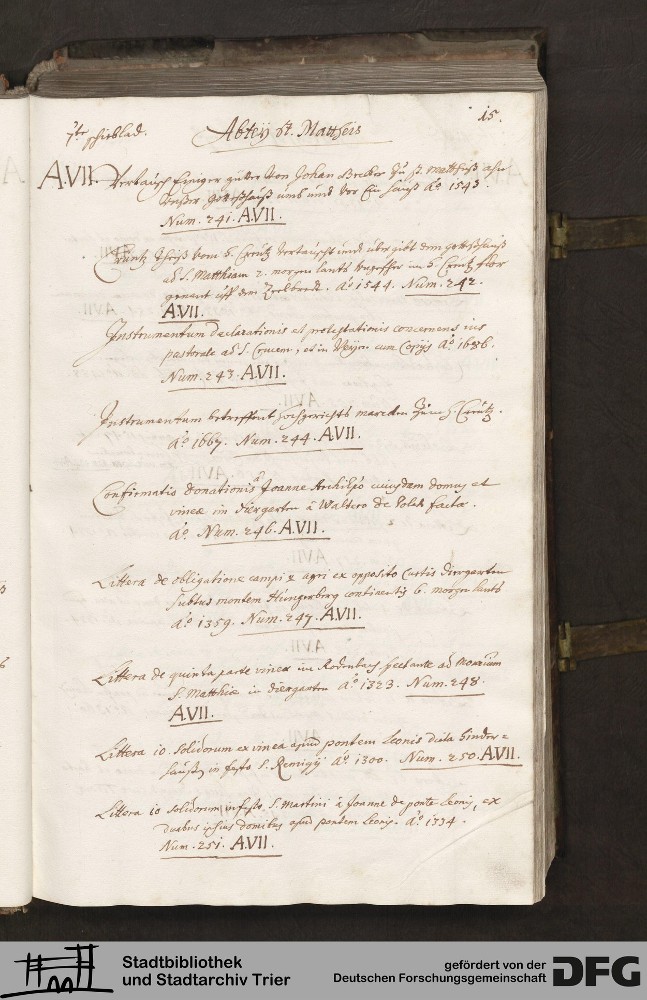 15.
7te schieblad. Abtey St. Mattheis
A.VII. Vertausch Einiger güter von Johan Becker zu St. Mattheiß ahn
unßer gottshauß umb und vor Ein hauß Aº 1543.
Num. 241. A.VII.
vom S. Creutz vertauscht und übergibt dem gottshauß
ad S. Matthiam 2. morgen lants im S. Creutzer
genant uff dem Aº 1544. Num. 242.
A.VII.
Instrumentum declarationis et protestationis concernens ius
pastorale ad S. Crucem, et in cum Copijs Aº 1636.
Num. 243. A.VII.
Instrumentum betreffent hochgerichts zum H. Creutz.
Aº 1667. Num. 244. A.VII.
Confirmatio donationis à Joanne Archiepõ cuiusdam domus et
vineæ in diergarten à Waltero de Polch facta.
Aº Num. 246. A.VII.
Littera de obligatione campi & agri ex opposito Curtis diergarten
subtus montem Hungerberg continentis 6. morgen lants
Aº 1359. Num. 247. A.VII.
Littera de quinta parte vineæ im Rodenbusch spectante ad
S. Matthiæ in diergarten Aº 1323. Num. 248.
A.VII.
Littera 10. Solidorum ex vinea apud pontem Leonis dicta
in festo S. Remigij Aº 1300. Num. 250. A.VII.
Littera 60 Solidorum in festo S. Martini à Joanne de ponte Leonis, ex
duabus ipsius domibus apud pontem Leonis. Aº 1334.
Num. 251. A.VII.
Stadtbibliothek
und Stadtarchiv Trier
gefördert von der
Deutschen Forschungsgemeinschaft
DFG